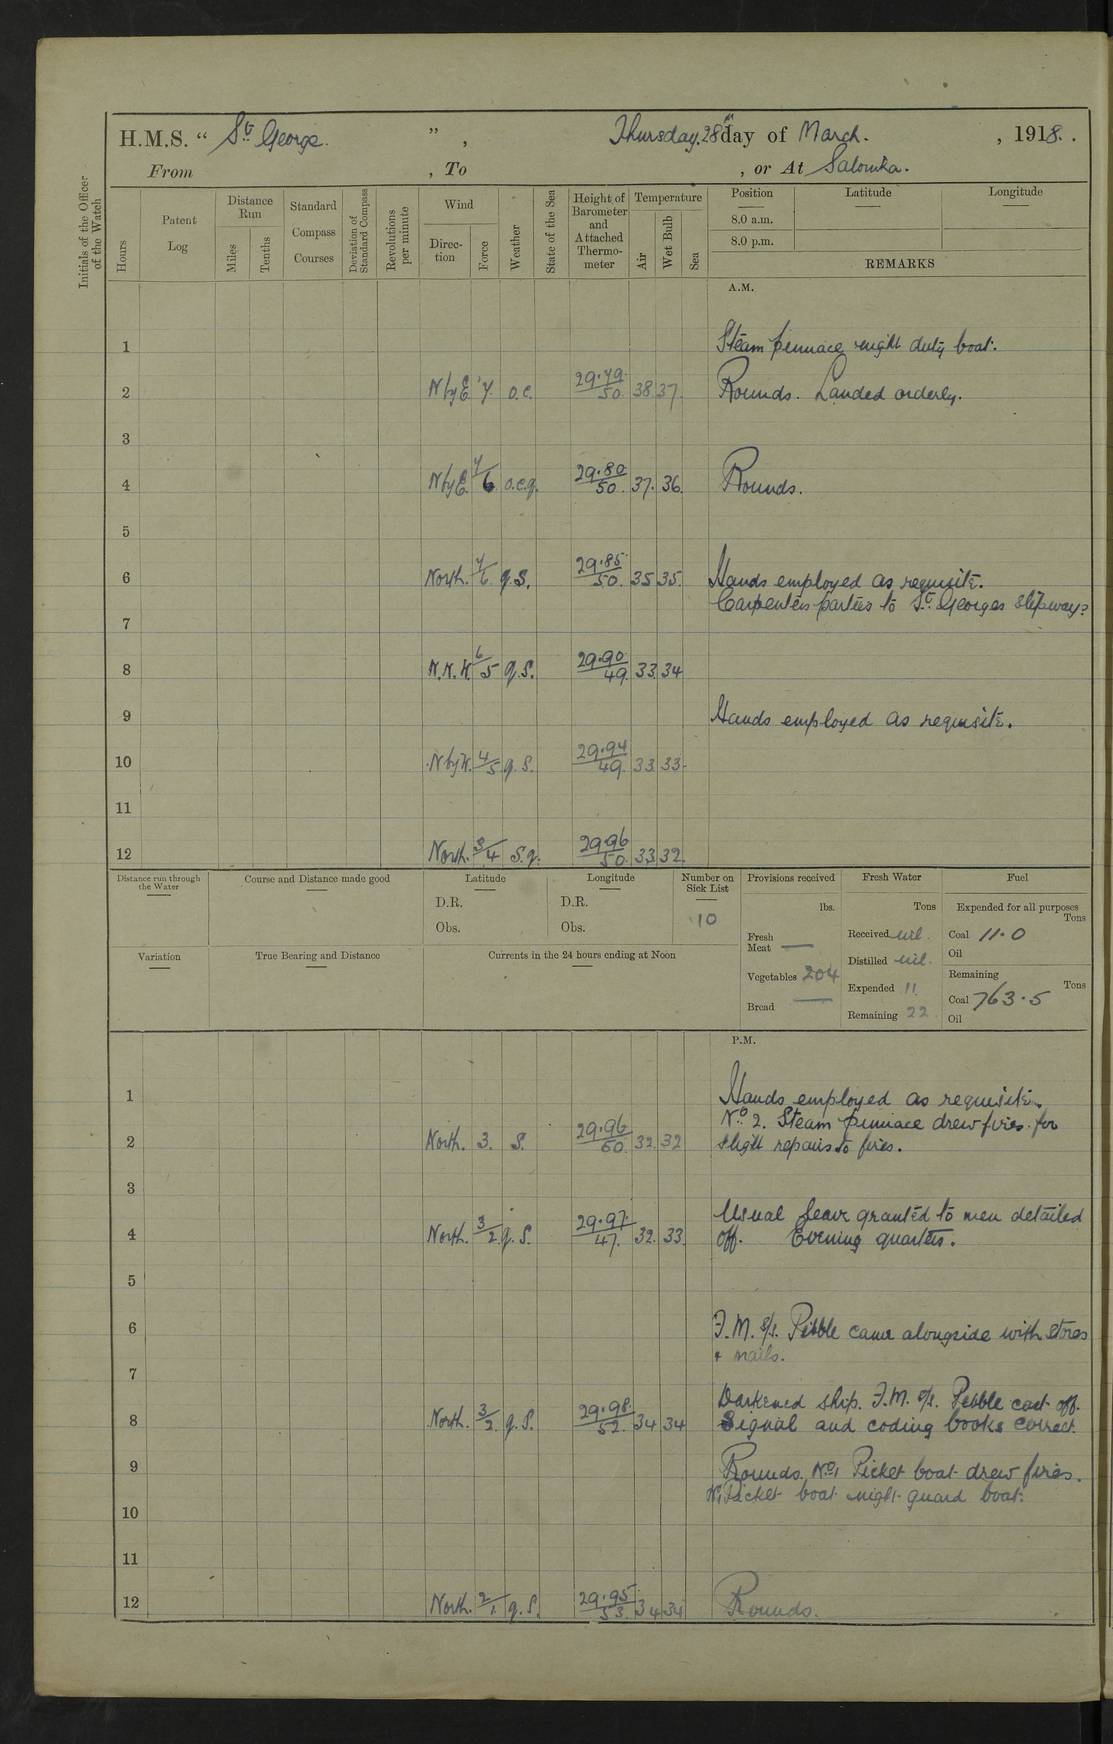 H.M.S. “ St George. ” , Thursday. 28th day of March. , 1918. .
From , To , or At Salonika.
Initials of the Officer of the Watch
Hours
Patent Log
Distance Run
Miles
Tenths
Standard Compass Courses
Deviation of Standard Compass
Revolutions per minute
Wind
Direction
Force
Weather
State of the Sea
Height of Barometer and Attached Thermometer
Temperature
Air
Wet Bulb
Sea
Position Latitude Longitude
8.0 a.m.
8.0 p.m.
REMARKS
A.M.
1 Steam pinnace night duty boat.
2 N by E 7. o.c. 29.79 50. 38 37. Rounds. Landed orderly.
3
4 N by E. 7/6. o.c.q. 29.80 50. 37. 36. Rounds.
5
6 North. 7/6. q.s. 29.85 50. 35 35. Hands employed as requisite.
Carpenters parties to St. Georges slipway
7
8 N.N.W. 6/5 q.s. 29.90 49. 33. 34
9 Hands employed as requisite.
10 N by W. 4/5. q.s. 29.94 49. 33. 33.
11
12 North. 3/4 s.q. 29.96 50. 33. 32.
Distance run through the Water
Course and Distance made good
Latitude
D.R.
Obs.
Longitude
D.R.
Obs.
Number on Sick List
10
Provisions received
lbs.
Fresh Meat —
Vegetables 204
Bread —
Fresh Water
Tons
Received nil.
Distilled nil.
Expended 11
Remaining 22
Fuel
Expended for all purposes
Tons
Coal 11.0
Oil
Remaining
Tons
Coal 763.5
Oil
Variation
True Bearing and Distance
Currents in the 24 hours ending at Noon
P.M.
1 Hands employed as requisite.
No. 2. Steam pinnace drew fires for
2 North. 3. s. 29.96 50. 32. 32 slight repairs to fires.
3
Usual leave granted to men detailed
4 North. 3/2. q.s. 29.97. 47. 32. 33. off. Evening quarters.
5
6 F.M. s/s. Pebble came alongside with stores
& nails.
7
Darkened ship. F.M. s/s. Pebble cast off.
8 North. 3/2. q.s. 29.98. 52. 34 34 Signal and coding books correct.
9 Rounds. No. 1 Picket boat drew fires.
Picket boat night guard boat.
10
11
12 North. 2/1 q.s. 29.95 53. 34 34 Rounds.